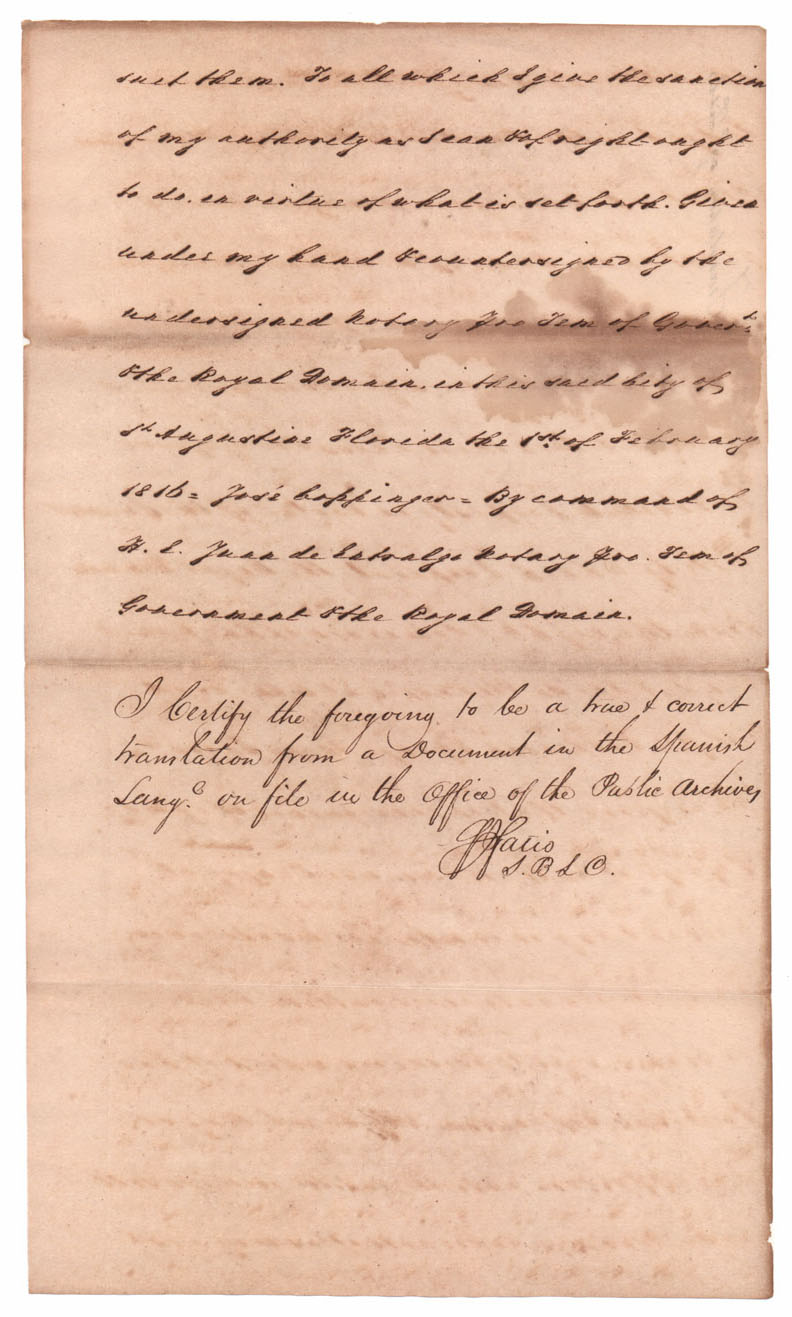 suit them. To all which I give the sanction
of my authority as I can & of right ought
to do, in virtue of what is set forth. Given
under my hand & countersigned by the
undersigned Notary Pro Tem of Governt.
& the Royal Domain, in this said City of
St Augustine Florida the 1st. of February
1816 = José Coppinger = By command of
H. E. Juan de Entralgo Notary Pro. Tem of
Government & the Royal Domain.
I Certify the foregoing to be a true & correct
translation from a Document in the Spanish
Lange. on file in the Office of the Public Archives
Fatio
S. B L C.